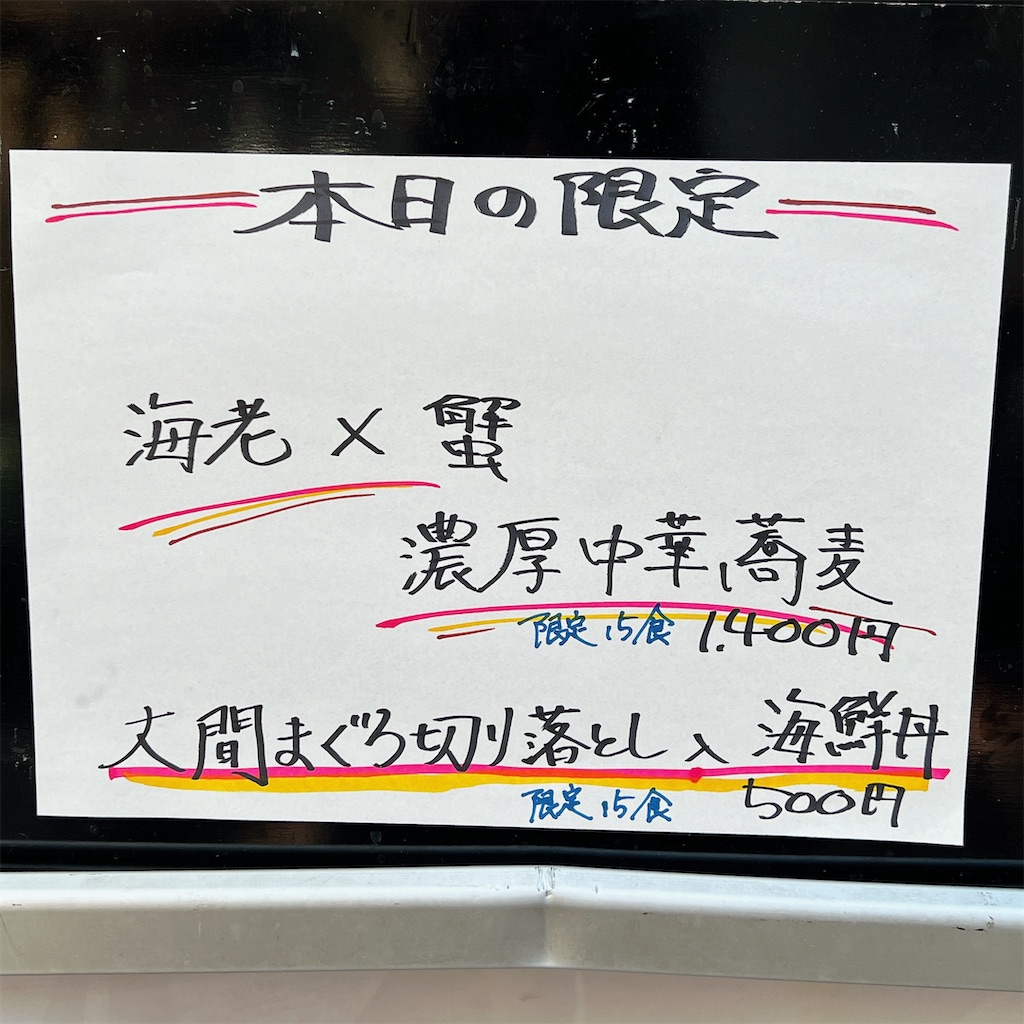 本日の限定
海老 × 蟹
濃厚中華蕎麦
限定15食 1,400円
大間まぐろ切り落とし入 海鮮丼
限定15食 500円